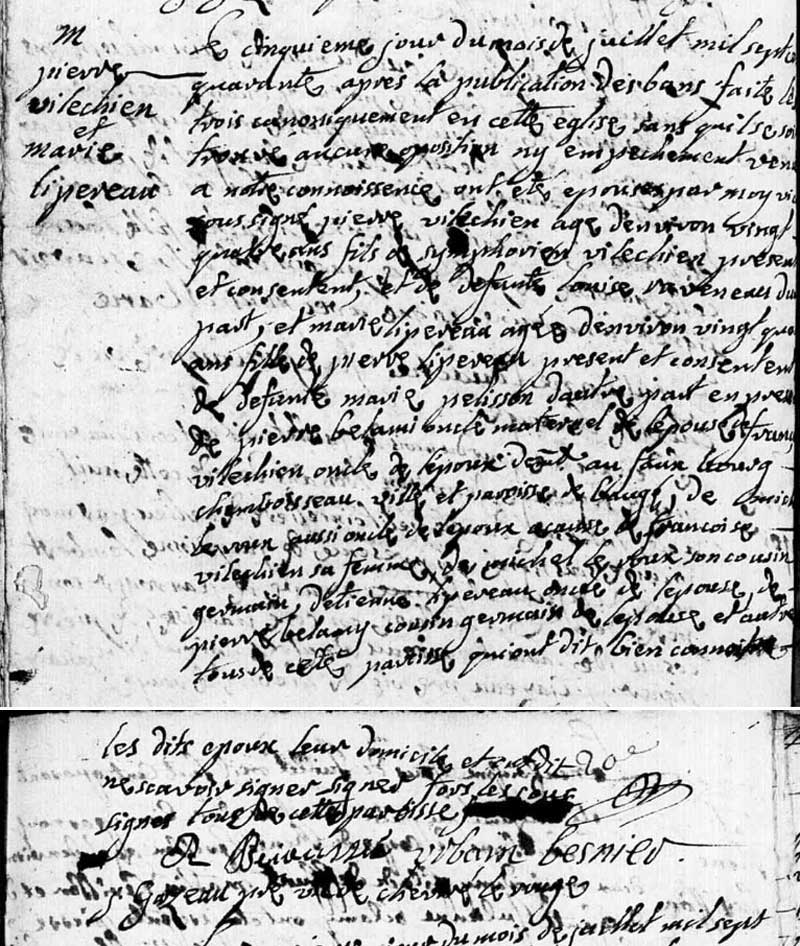 M
pierre
vilechien
et
marie
lipereau
Le cinquieme jour du mois de juillet mil sept
quarante apres la publication des bans faite
trois canoniquement en cette eglise sans quil se soit
trouvé aucune oposition ny empechement venu
a notre connoissence ont eté epousez par moy vic
soussigné pierre vilechien agé denviron vingt
quatre ans fils de symphorien vilechien present
et consentent, et de defante louise raveneau dune
part, et marie lipereau agée denviron vingt quatre
ans fille de pierre lipereau present et consentent
de defante marie pelisson dautre part en presence
de pierre belami oncle maternel de lepouse de franc
vilechien oncle de lepoux demt au faux bourg
chemboisseau ville et paroisse de baugé, de
le roux aussi oncle de lepoux acause de francoise
vilechien sa femme, de michel le roux son cousin
germain, detienne lipereau oncle de lepouse, de
pierre belamy cousin germain de lepouse et autre
tous de cette paroisse qui ont dit bien connoitre
les dits epoux leur domicile et ont dit
ne scavoir signer signes fors les sous
signes tous de cette paroisse
R urbain besnier
j Gazeau pre vic de cheviré le rouge
jour du mois de juillet mil sept